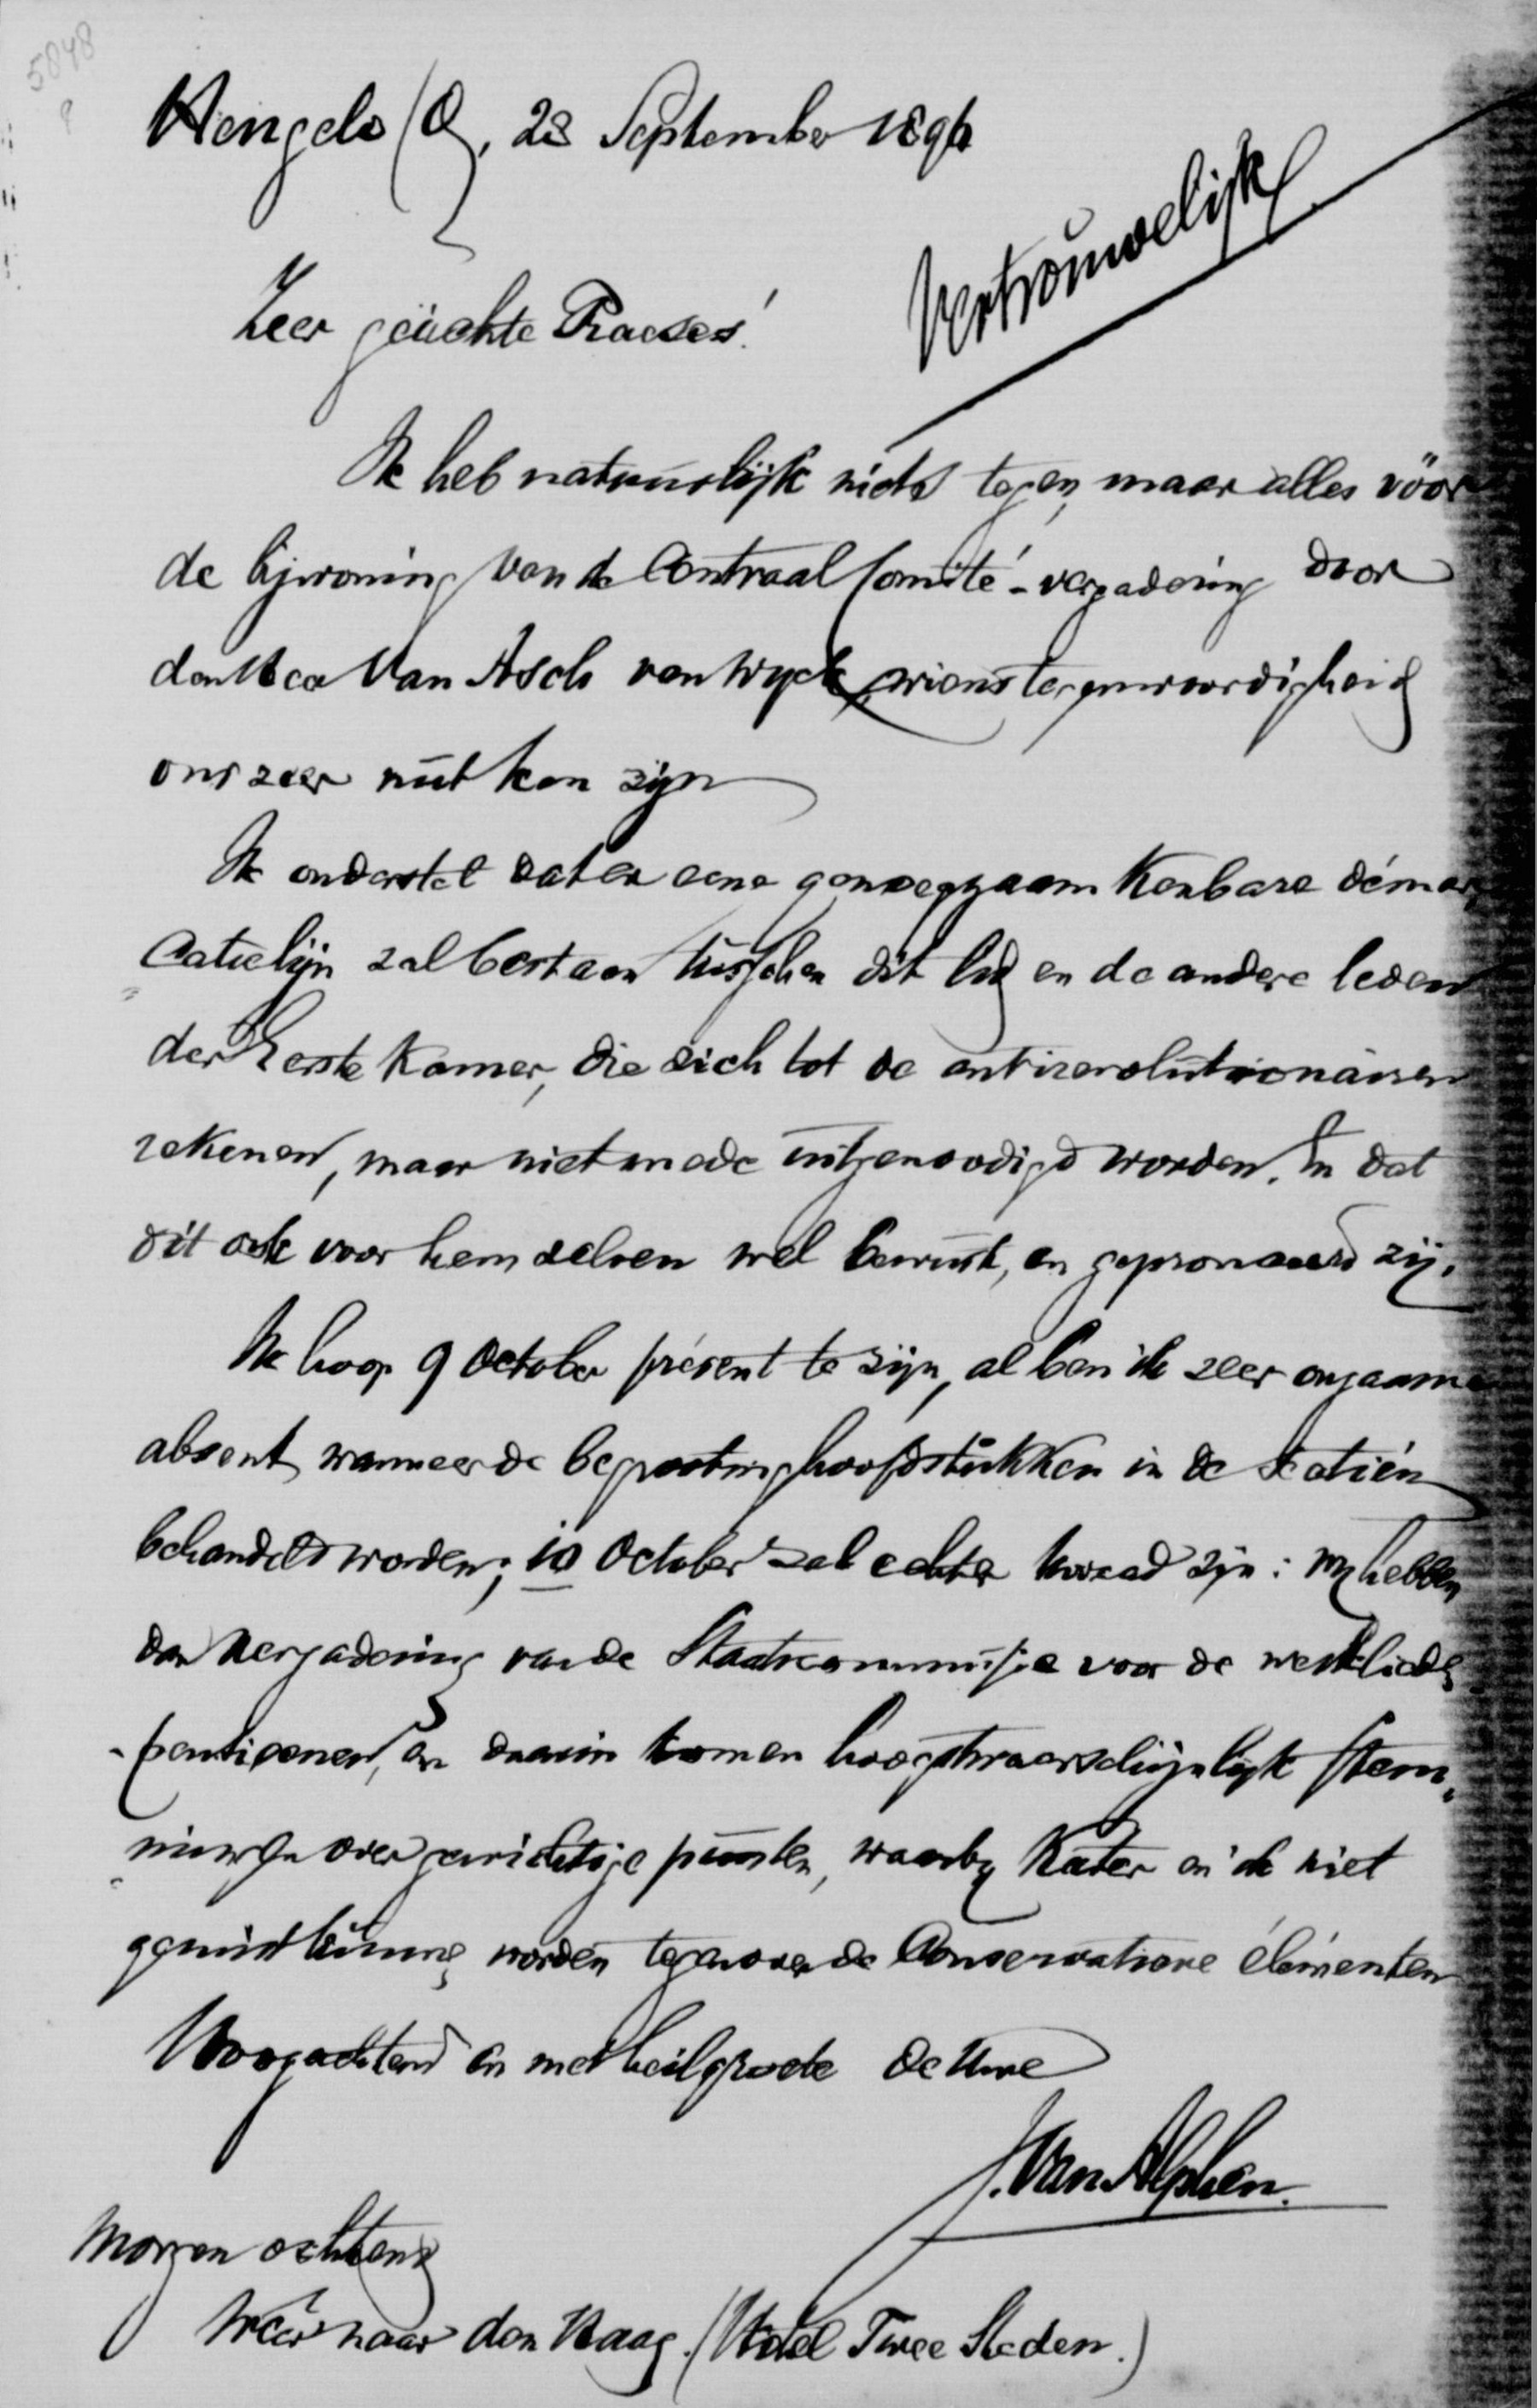 5848
Hengelo (O), 28 September 1896
Vertrouwelijk
Zeer geachte Praeses!
Ik heb natuurlijk niets tegen, maar alles vóór
de bijwoning van de Centraal Comité-vergadering door
den Heer Van Asch van Wyck, wiens tegenwoordigheid
ons zeer nut kan zijn
Ik onderstel dat er eene genoegzaam kenbare démar„
„catielijn zal bestaan tusschen dit lid en de andere leden
der Eerste Kamer, die zich tot de antirevolutionairen
rekenen, maar niet mede uitgenoodigd worden. En dat
dit ook voor hem zelven wel bewust, en zij.
Ik hoop 9 October présent te zijn, al ben ik zeer ongaarne
absent wanneer de begrootinghoofdstukken in de sectiën
behandeld worden; 10 October zal echter kwaad zijn: wy hebben
dan vergadering van de Staatscommissie voor de werklieden
-pensioenen, en daarin komen hoogstwaarschijnlijk stem„
„mingen over gewichtige punten, waarby Kater en ik niet
gemist kunnen worden tegenover de Conservatieve élémenten
Hoogachtend en met heilgroete de Uwe
J. Van Alphen.
Morgen ochtend
weêr naar den Haag. (Hotel Twee Steden.)